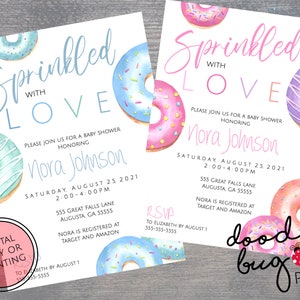 Sprinkled
WITH
LOVE
PLEASE JOIN US FOR A BABY SHOWER
HONORING
Nora Johnson
SATURDAY AUGUST 25, 2021
2:00-4:00PM
555 GREAT FALLS LANE
AUGUSTA, GA 55555
NORA IS REGISTERED AT
TARGET AND AMAZON
TO ELIZABETH BY AUGUST 1
Sprinkled
WITH
LOVE
PLEASE JOIN US FOR A BABY SHOWER
HONORING
Nora Johnson
SATURDAY AUGUST 25, 2021
2:00-4:00PM
555 GREAT FALLS LANE
AUGUSTA, GA 55555
NORA IS REGISTERED AT
TARGET AND AMAZON
RSVP
TO ELIZABETH BY AUGUST 1
doodl
bug